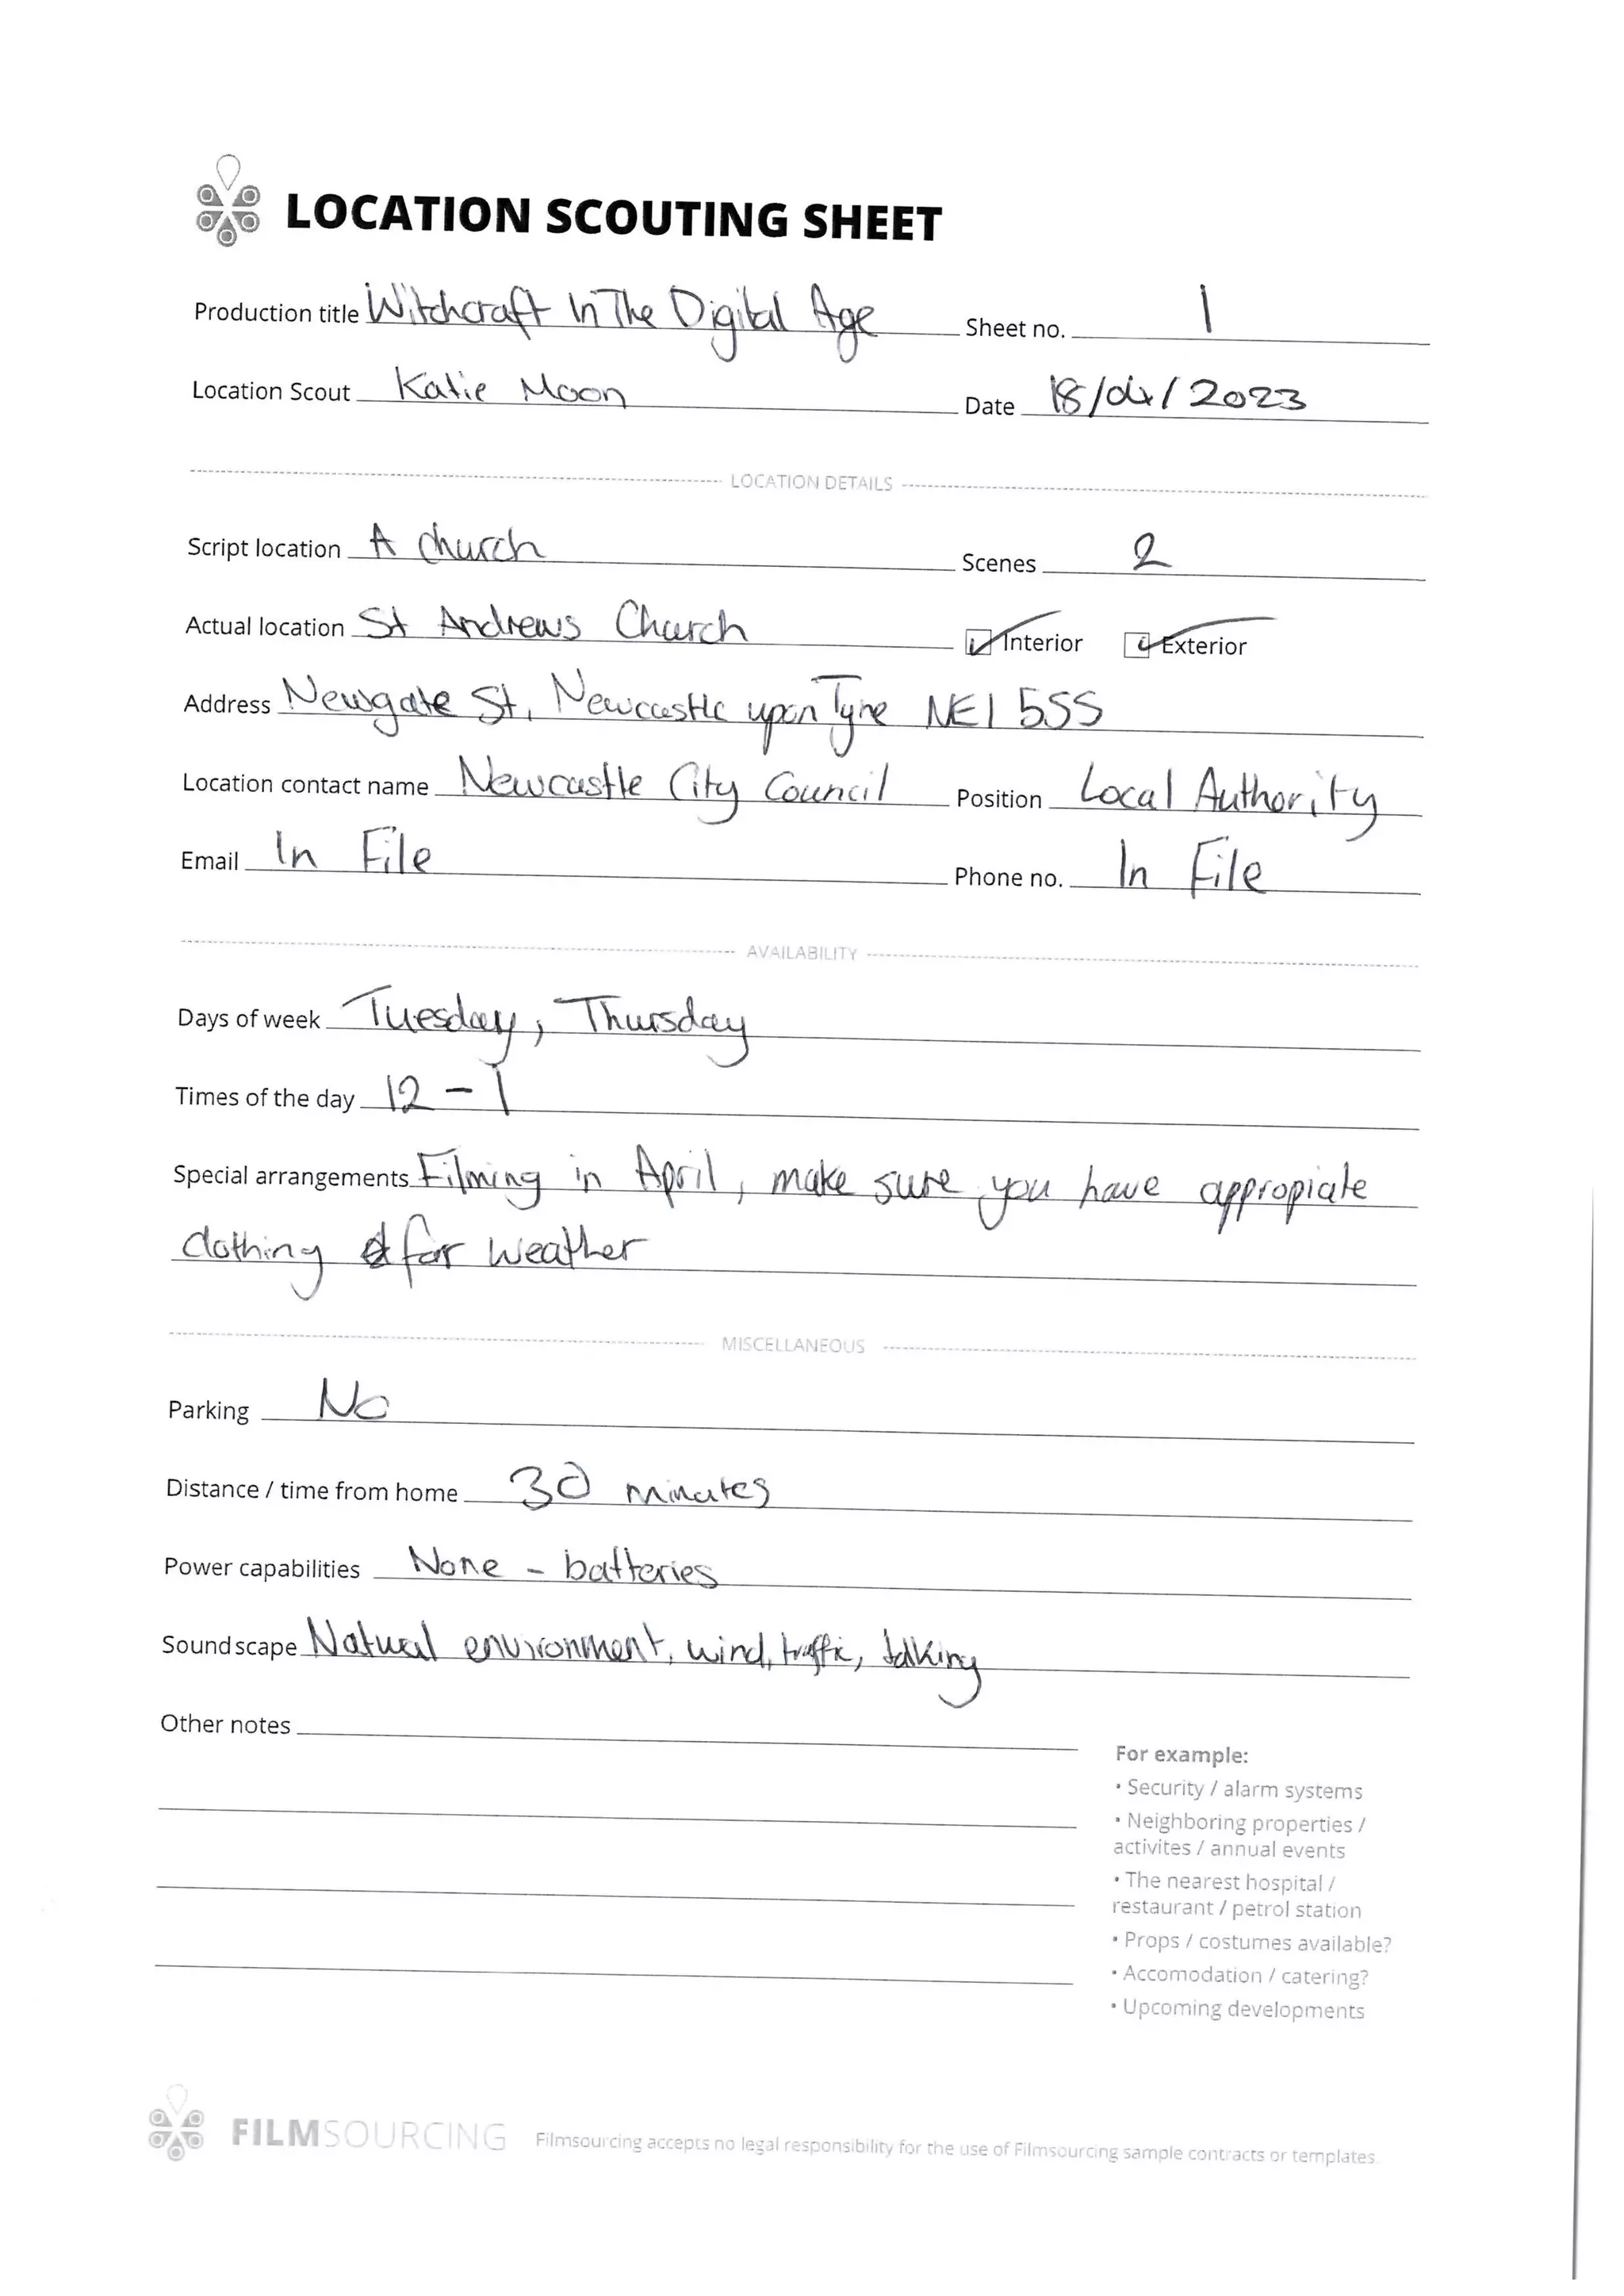 LOCATION SCOUTING SHEET
Production title Witchcraft In The Digital Age Sheet no. 1
Location Scout Katie Moon Date 18/04/2023
LOCATION DETAILS
Script location A church Scenes 2
Actual location St Andrews Church Interior Exterior
Address Newgate St, Newcastle upon Tyne NE1 5SS
Location contact name Newcastle City Council Position Local Authority
Email In File Phone no. In File
AVAILABILITY
Days of week Tuesday, Thursday
Times of the day 12 - 1
Special arrangements Filming in April, make sure you have appropiate
clothing for weather
MISCELLANEOUS
Parking No
Distance / time from home 30 minutes
Power capabilities None - batteries
Soundscape Natural environment, wind, traffic, talking
Other notes
For example:
• Security / alarm systems
• Neighboring properties /
activites / annual events
• The nearest hospital /
restaurant / petrol station
• Props / costumes available?
• Accomodation / catering?
• Upcoming developments
FILMSOURCING Filmsourcing accepts no legal responsibility for the use of Filmsourcing sample contracts or templates.